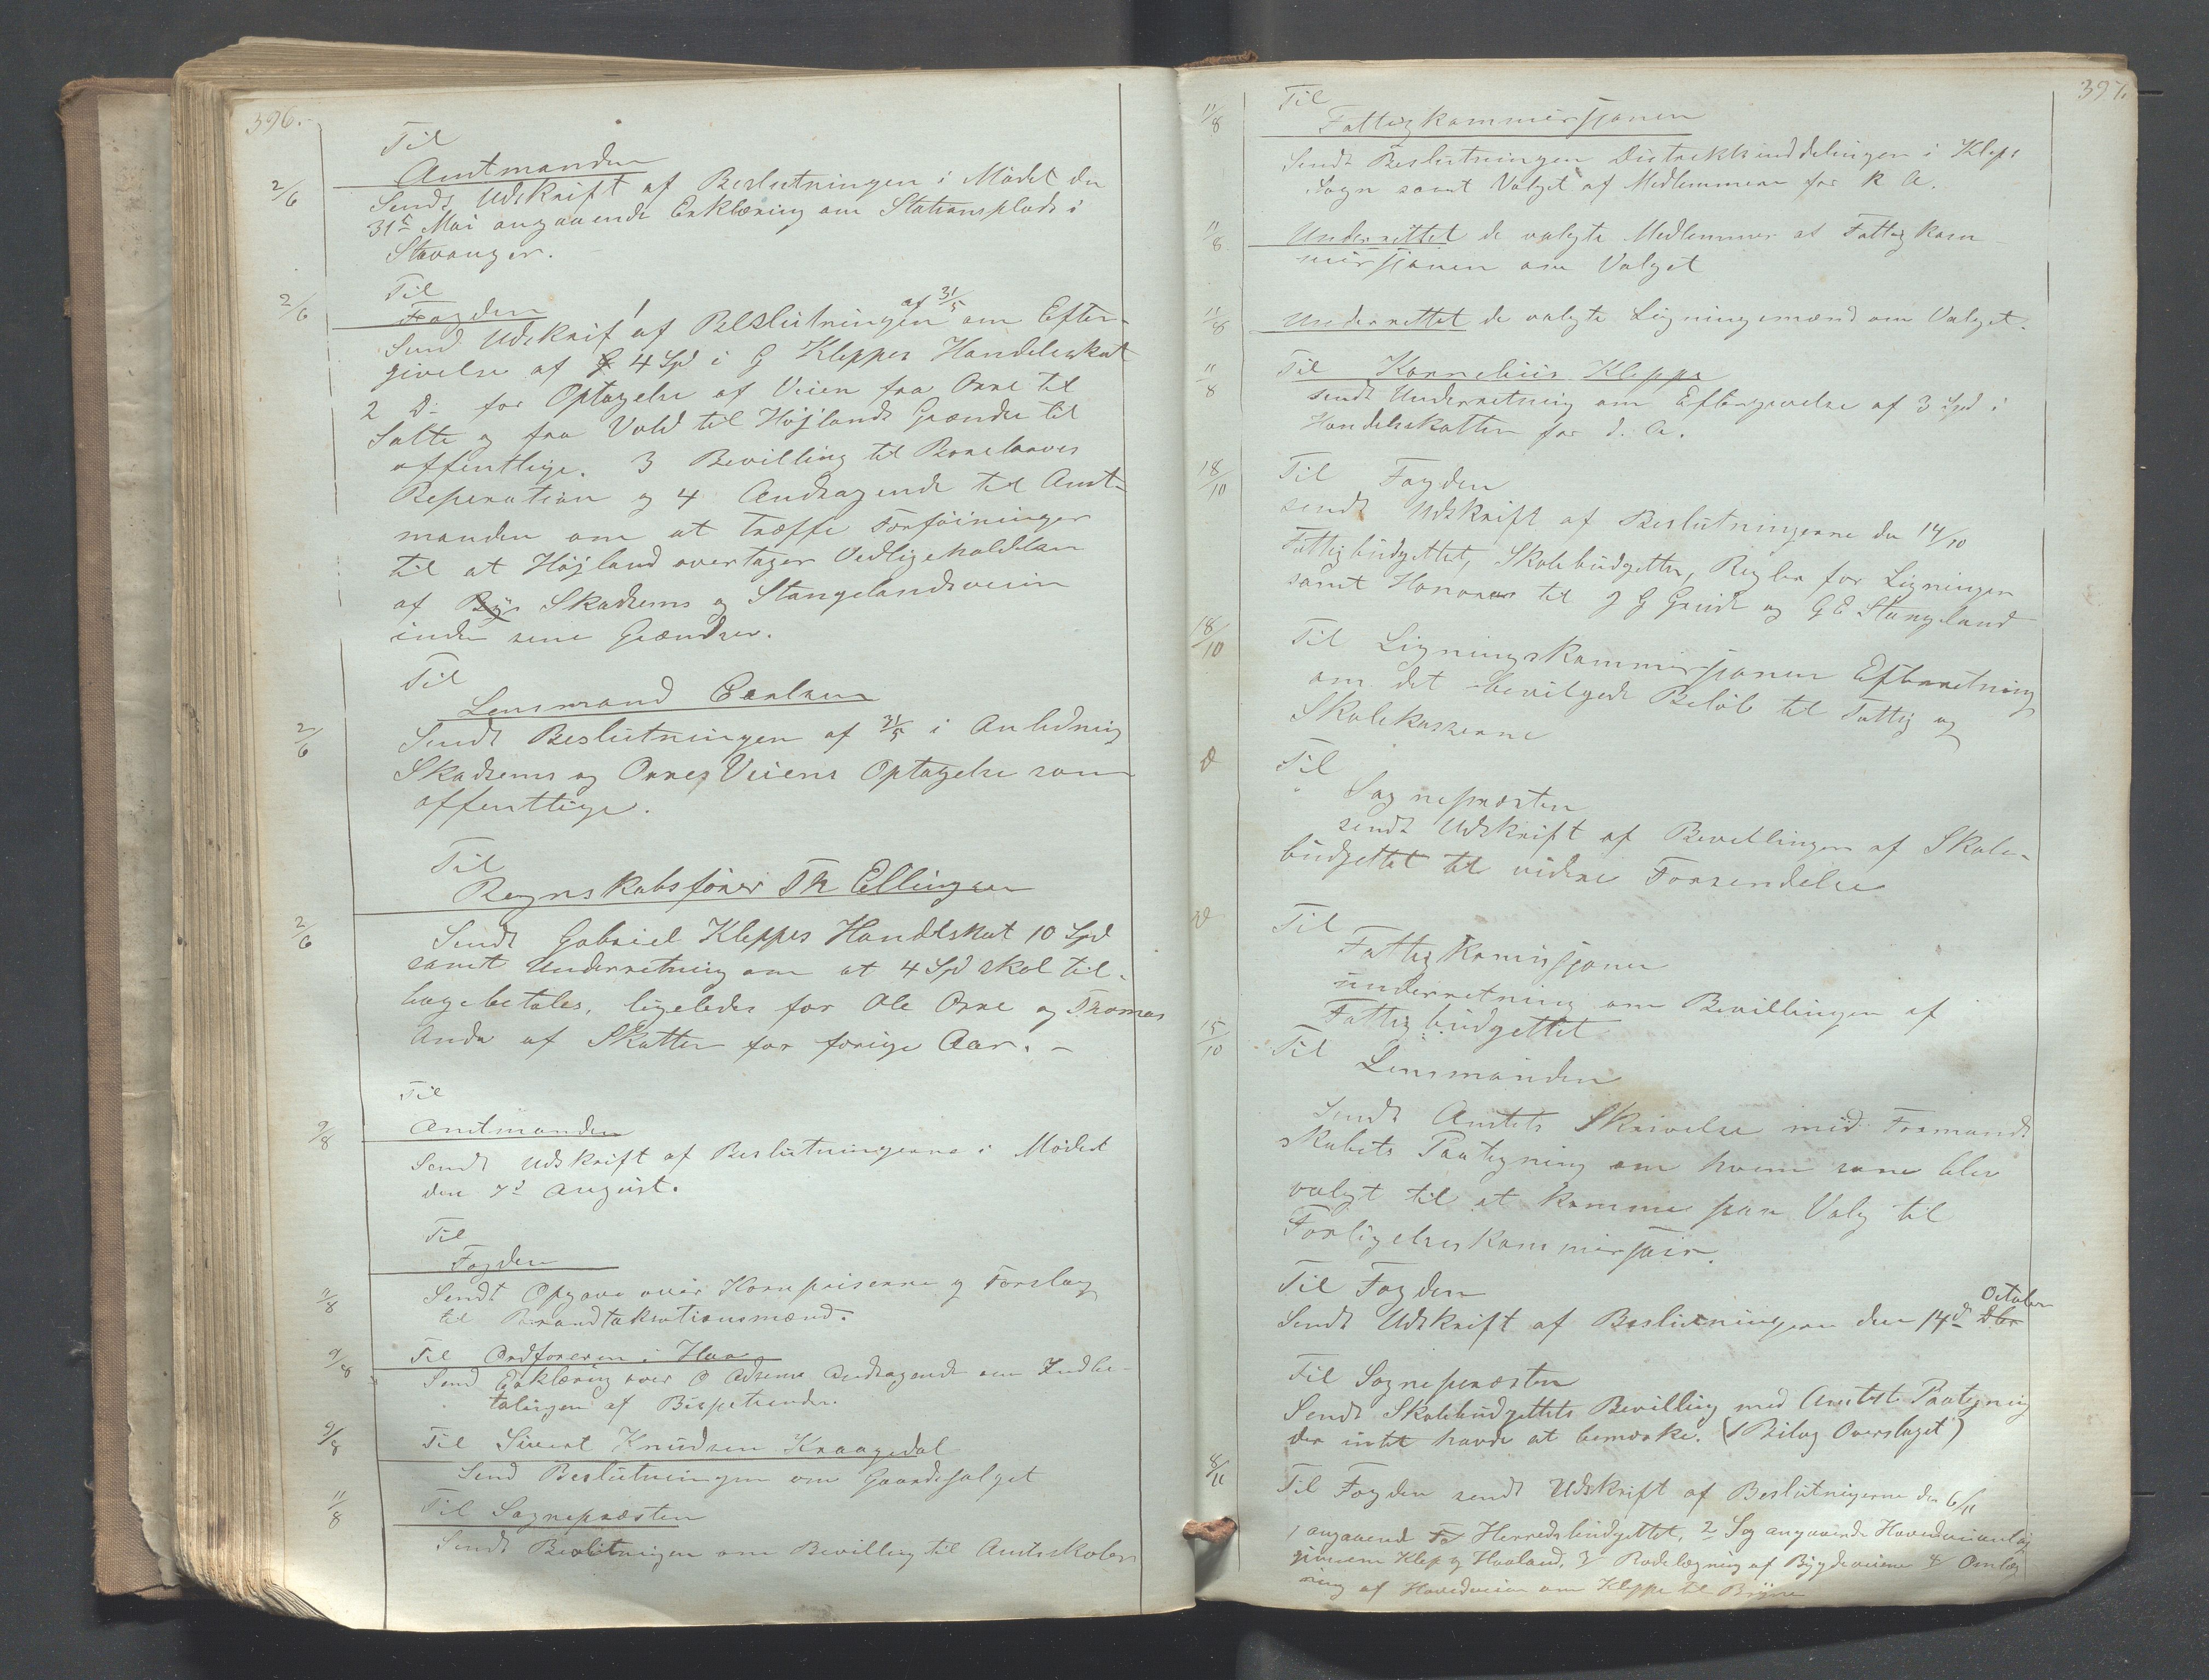 396.
Til
Amtmanden
2/6
Sendt Udskrift af Beslutningen i Mödet den
31te Mai angaaende Erklæring om Stationsplads i
Stavanger.
Til
2/6
Fogden
Send Udskrift af Beslutningen af 31/5 om Efter-
givelse af 4 Spd i G Kleppes Handelsskat
2 for Optagelse af Veien fra Orre til
Salte og fra Vold til Höjlands Grændse til
offentlige. 3 Bevilling til
Reperation og 4 Andragende til Amt-
manden om at træffe Forföininger
til at Höjland overtager Vedligeholdelsen
af Skadsems og Stangelandsveien
inden sine Grændser.
Til
Lensmand Carlsen
2/6
Sendt Beslutningen af 31/5 i Anledning
Skadsems og Orres Veiens Optagelse som
offentlige.
Til
Regnskabsförer Th Ellingsen
2/6
Sendt Gabriel Kleppes Handelskat 10 Spd
samt Underretning om at 4 Spd skal til-
bagebetales, ligeledes for Ole Orre og Thomas
Anda af Skatten for forige Aar. -
Til
Amtmanden
9/8
Sendt Udskrift af Beslutningerne i Mödet
den 7d August.
Til
Fogden
11/8
Sendt Opgave over Kornpriserne og Forslag
til Brandtakstionsmænd.
9/8
Til Ordföreren i Haa
Send Erklæring over O Adsens Andragende om Indbe-
talingen af Bispetiende.
9/8
Til Sivert Knudsen Kraagedal
Send Beslutningen om Gaardsalget
11/8
Til Sognepræsten
Sendt Beslutningen om Bevilling til Amtsskolen
397.
Til
11/8
Fattigkommissjonen
Sendt Beslutningen Distriktsinddelingen i Klep
Sogn samt Valget af Medlemmer for K A.
11/8
Underrettet de valgte Medlemmer at Fattigkom
missjonen om Valget
11/8
Underrettet de valgte Ligningsmænd om Valget.
11/8
Til Kornelius Kleppe
sendt Underretning om Eftergivelse af 3 Spd i
Handelsskatten for d. A.
18/10
Til Fogden
sendt Udskrift af Beslutningerne den 14/10
Fattigbudgettet, Skolebudgettet, Regler for Ligningen
samt Honorar til J G Grude og G E Stangeland
18/10
Til Ligningskommissjonen Efterretning
om det bevilgede Belöb til Fattig og
Skolekasserne
D
Til
Sognepræsten
sendt Udskrift af Bevillingen af Skole-
budgettet til videre Forsendelse
D
Til
Fattigkomissjonen
underretning om Bevillingen af
Fattigbudgettet
15/10
Til
Lensmanden
Sendt Amtets Skrivelse med Formand
skabets Paategning om hvem som blev
valgt til at komme paa Valg til
Forligelseskommissair.
Til Fogden
Sendt Udskrift af Beslutningen den 14d October
Til Sognepræsten
Sendt Skolebudgettets Bevilling med Amtets Paategning
der intet havde at bemærke. (1 Bilag Overslaget)
8/11
Til Fogden sendt Udskrift af Beslutningerne den 6/11
1 angaaend Herredsbudgettet, 2 Sag angaaende Hovedveianlæg
gjennem Klep og Haaland, 3/ Rodelægning af Bygdeveiene 4/ Omlæg
ning af Hovedveien om Kleppe til Bryne